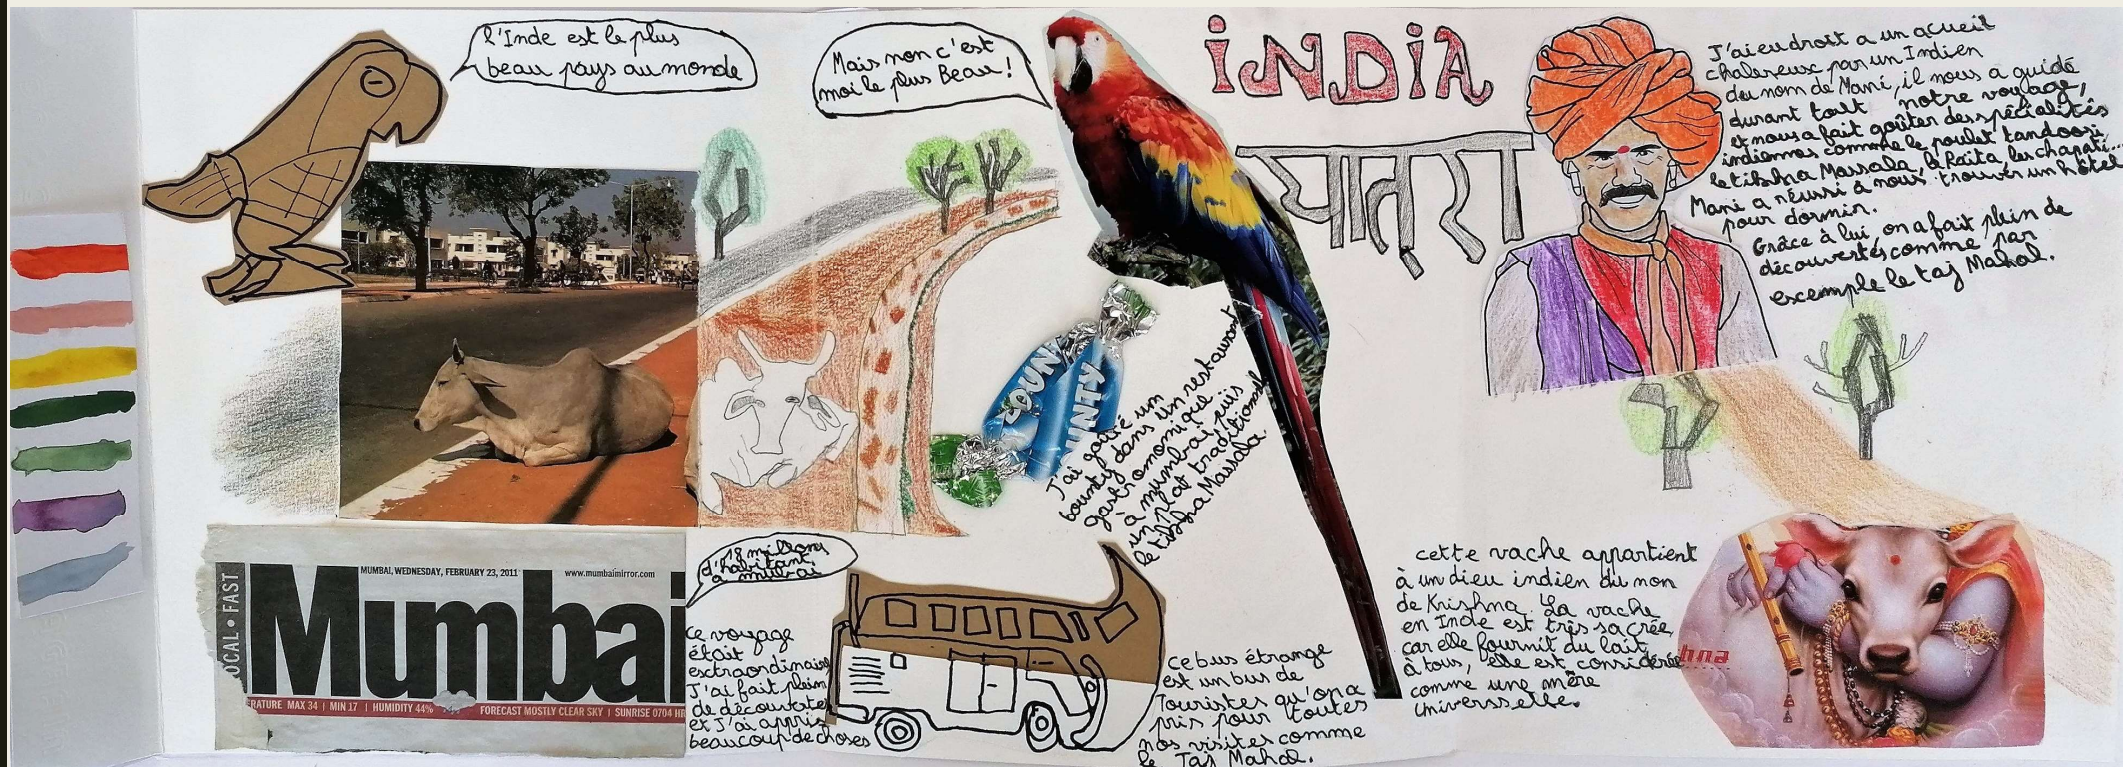 l'Inde est le plus
beau pays au monde
Mais non c'est
moi le plus Beau !
INDIA
यात्रा
J'ai eu droit a un acueil
chalereux par un Indien
du nom de Mani, il nous a guidé
durant tout notre voyage,
et nous a fait goûter des spécialités
indiennes comme le poulet tandoori,
le tikka Massala, la Raita, les chapati...
Mani a réussi à nous trouver un hôtel
pour dormir.
Grâce à lui on a fait plein de
découvertes comme par
excemple le taj Mahal.
BOUNTY
BOUNTY
J'ai gouté un
bounty dans un restaurant
gastronomique
à mumbai, puis
un plat traditionnel
le tikka Massala.
LOCAL • FAST
MUMBAI, WEDNESDAY, FEBRUARY 23, 2011
www.mumbaimirror.com
Mumbai
RATURE MAX 34 | MIN 17 | HUMIDITY 44%
FORECAST MOSTLY CLEAR SKY | SUNRISE 0704 HR
18 millions
d'habitant
à
ce voyage
était
exctraordinaire
J'ai fait plein
de découvertes
et J'ai appris
beaucoup de choses
ce bus étrange
est un bus de
Touristes qu'on a
pris pour toutes
nos visites comme
le Taj Mahal.
cette vache appartient
à un dieu indien du non
de Krishna. La vache
en Inde est très sacrée,
car elle fournit du lait
à tous, elle est considérée
comme une mère
universselle.
hna